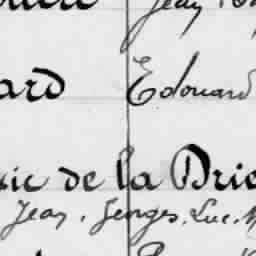 Jean
ard Edouard
de la Brie
Jean, Georges, Luc,